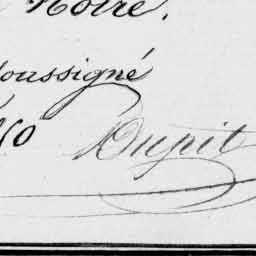 Noire.
soussigné
Dupit